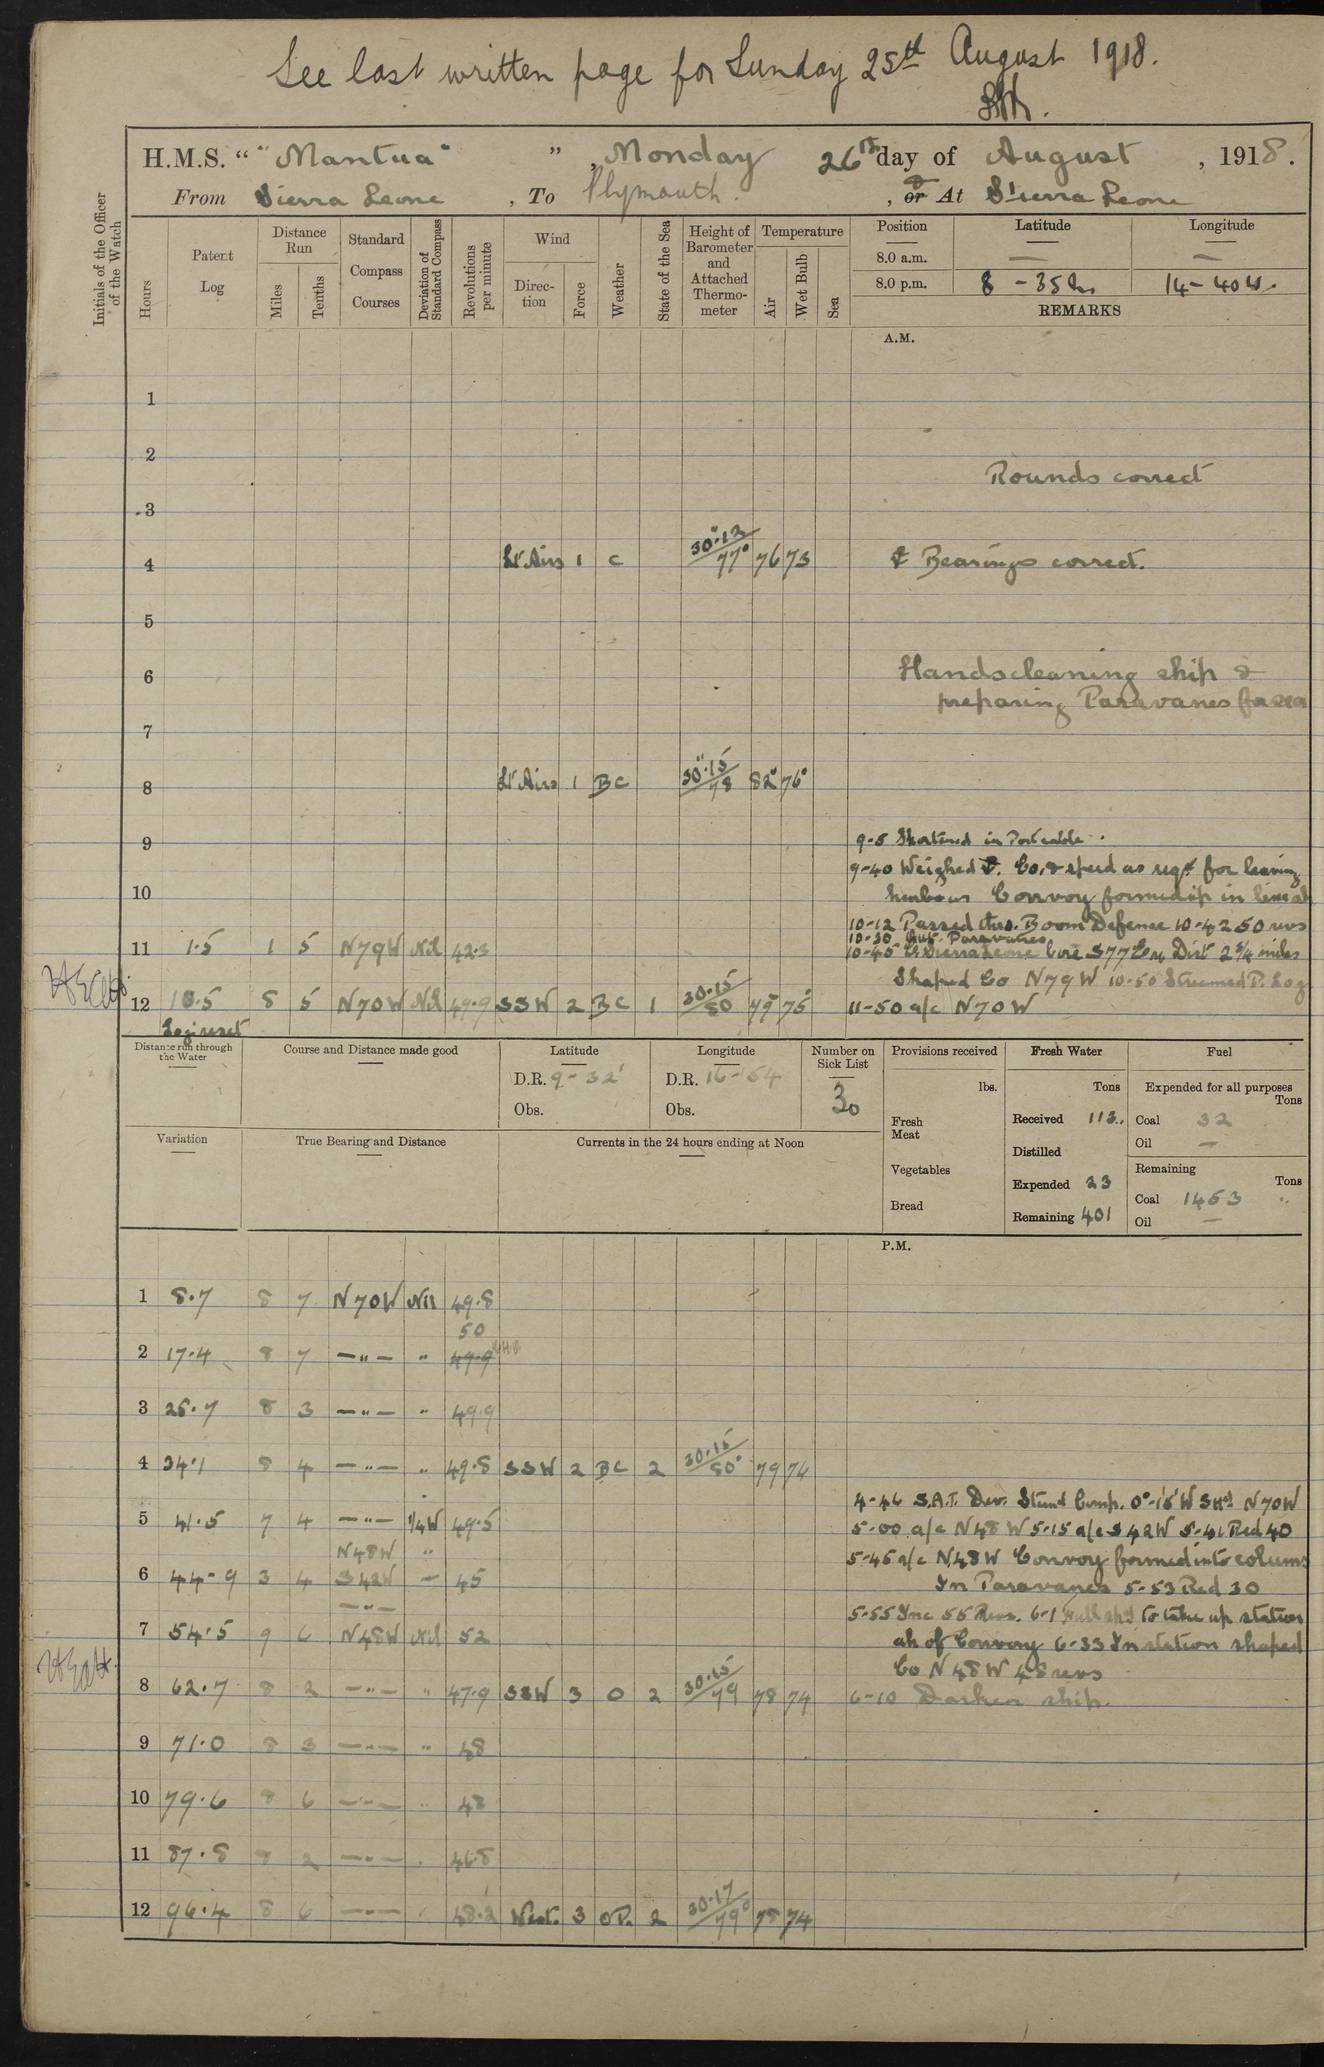 See last written page for Sunday 25th August 1918.
H.M.S. " "Mantua" " , Monday 26th day of August , 1918.
From Sierra Leone , To Plymouth. , or At Sierra Leone
Initials of the Officer of the Watch
Hours
Patent Log
Distance Run
Miles
Tenths
Standard Compass Courses
Deviation of Standard Compass
Revolutions per minute
Wind
Direction
Force
Weather
State of the Sea
Height of Barometer and Attached Thermometer
Temperature
Air
Wet Bulb
Sea
Position Latitude Longitude
8.0 a.m. — —
8.0 p.m. 8 - 35 14 - 40 W.
REMARKS
A.M.
1
2
Rounds correct
3
4 Lt Airs 1 C 30.13/77° 76 73 & Bearings correct.
5
6 Hands cleaning ship &
preparing Paravanes for sea
7
8 Lt Airs 1 BC 30.15/78 82° 76°
9 9-5 Shortened in Port cable.
9-40 Weighed . Co. & speed as reqd for leaving
10 harbour Convoy formed up in line ah
10-12 Passed thro. Boom Defence 10-42 50 revs
10-30 Out Paravanes
11 1.5 1 5 N79W Nil 42.3 10-45 C. Sierra Leone bore S77E Dist 2 3/4 miles
Shaped Co N79W 10-50 Streamed P. Log
12 10.5 8 5 N70W Nil 49.9 SSW 2 BC 1 30.15/80 79° 75° 11-50 a/c N70W
Log reset
Distance run through the Water
Course and Distance made good
Latitude
D.R. 9-32'
Obs.
Longitude
D.R. 16-54
Obs.
Number on Sick List
30
Provisions received
lbs.
Fresh Meat
Vegetables
Bread
Fresh Water
Tons
Received 113.
Distilled
Expended 23
Remaining 401
Fuel
Expended for all purposes
Tons
Coal 32
Oil —
Remaining
Tons
Coal 1453 "
Oil —
Variation
True Bearing and Distance
Currents in the 24 hours ending at Noon
P.M.
1 8.7 8 7 N70W Nil 49.8
50
2 17.4 8 7 —"— " 49.9
3 25.7 8 3 —"— " 49.9
4 34.1 8 4 —"— " 49.8 SSW 2 BC 2 30.15/80° 79 74
4-46 S.A.T. Dev. Stand Comp. 0°-15'W SHd N70W
5 41.5 7 4 —"— 1/4W 49.5 5-00 a/c N48W 5-15 a/c S42W 5-41 Red 40
N48W " 5-45 a/c N48W Convoy formed into columns
6 44.9 3 4 S42W — 45 In Paravanes 5-53 Red 30
—"— 5-55 Inc 55 Revs. 6-1 Full spd to take up station
7 54.5 9 6 N48W Nil 52 ah of Convoy 6-33 In station shaped
Co N48W 48 revs
8 62.7 8 2 —"— " 47.9 SSW 3 O 2 30.15/79 78 74 6-10 Darken ship.
9 71.0 8 3 —"— " 48
10 79.6 8 6 —"— " 48
11 87.8 8 2 —"— " 46.8
12 96.4 8 6 —"— " 48.2 West. 3 OP. 2 30.17/79° 78 74